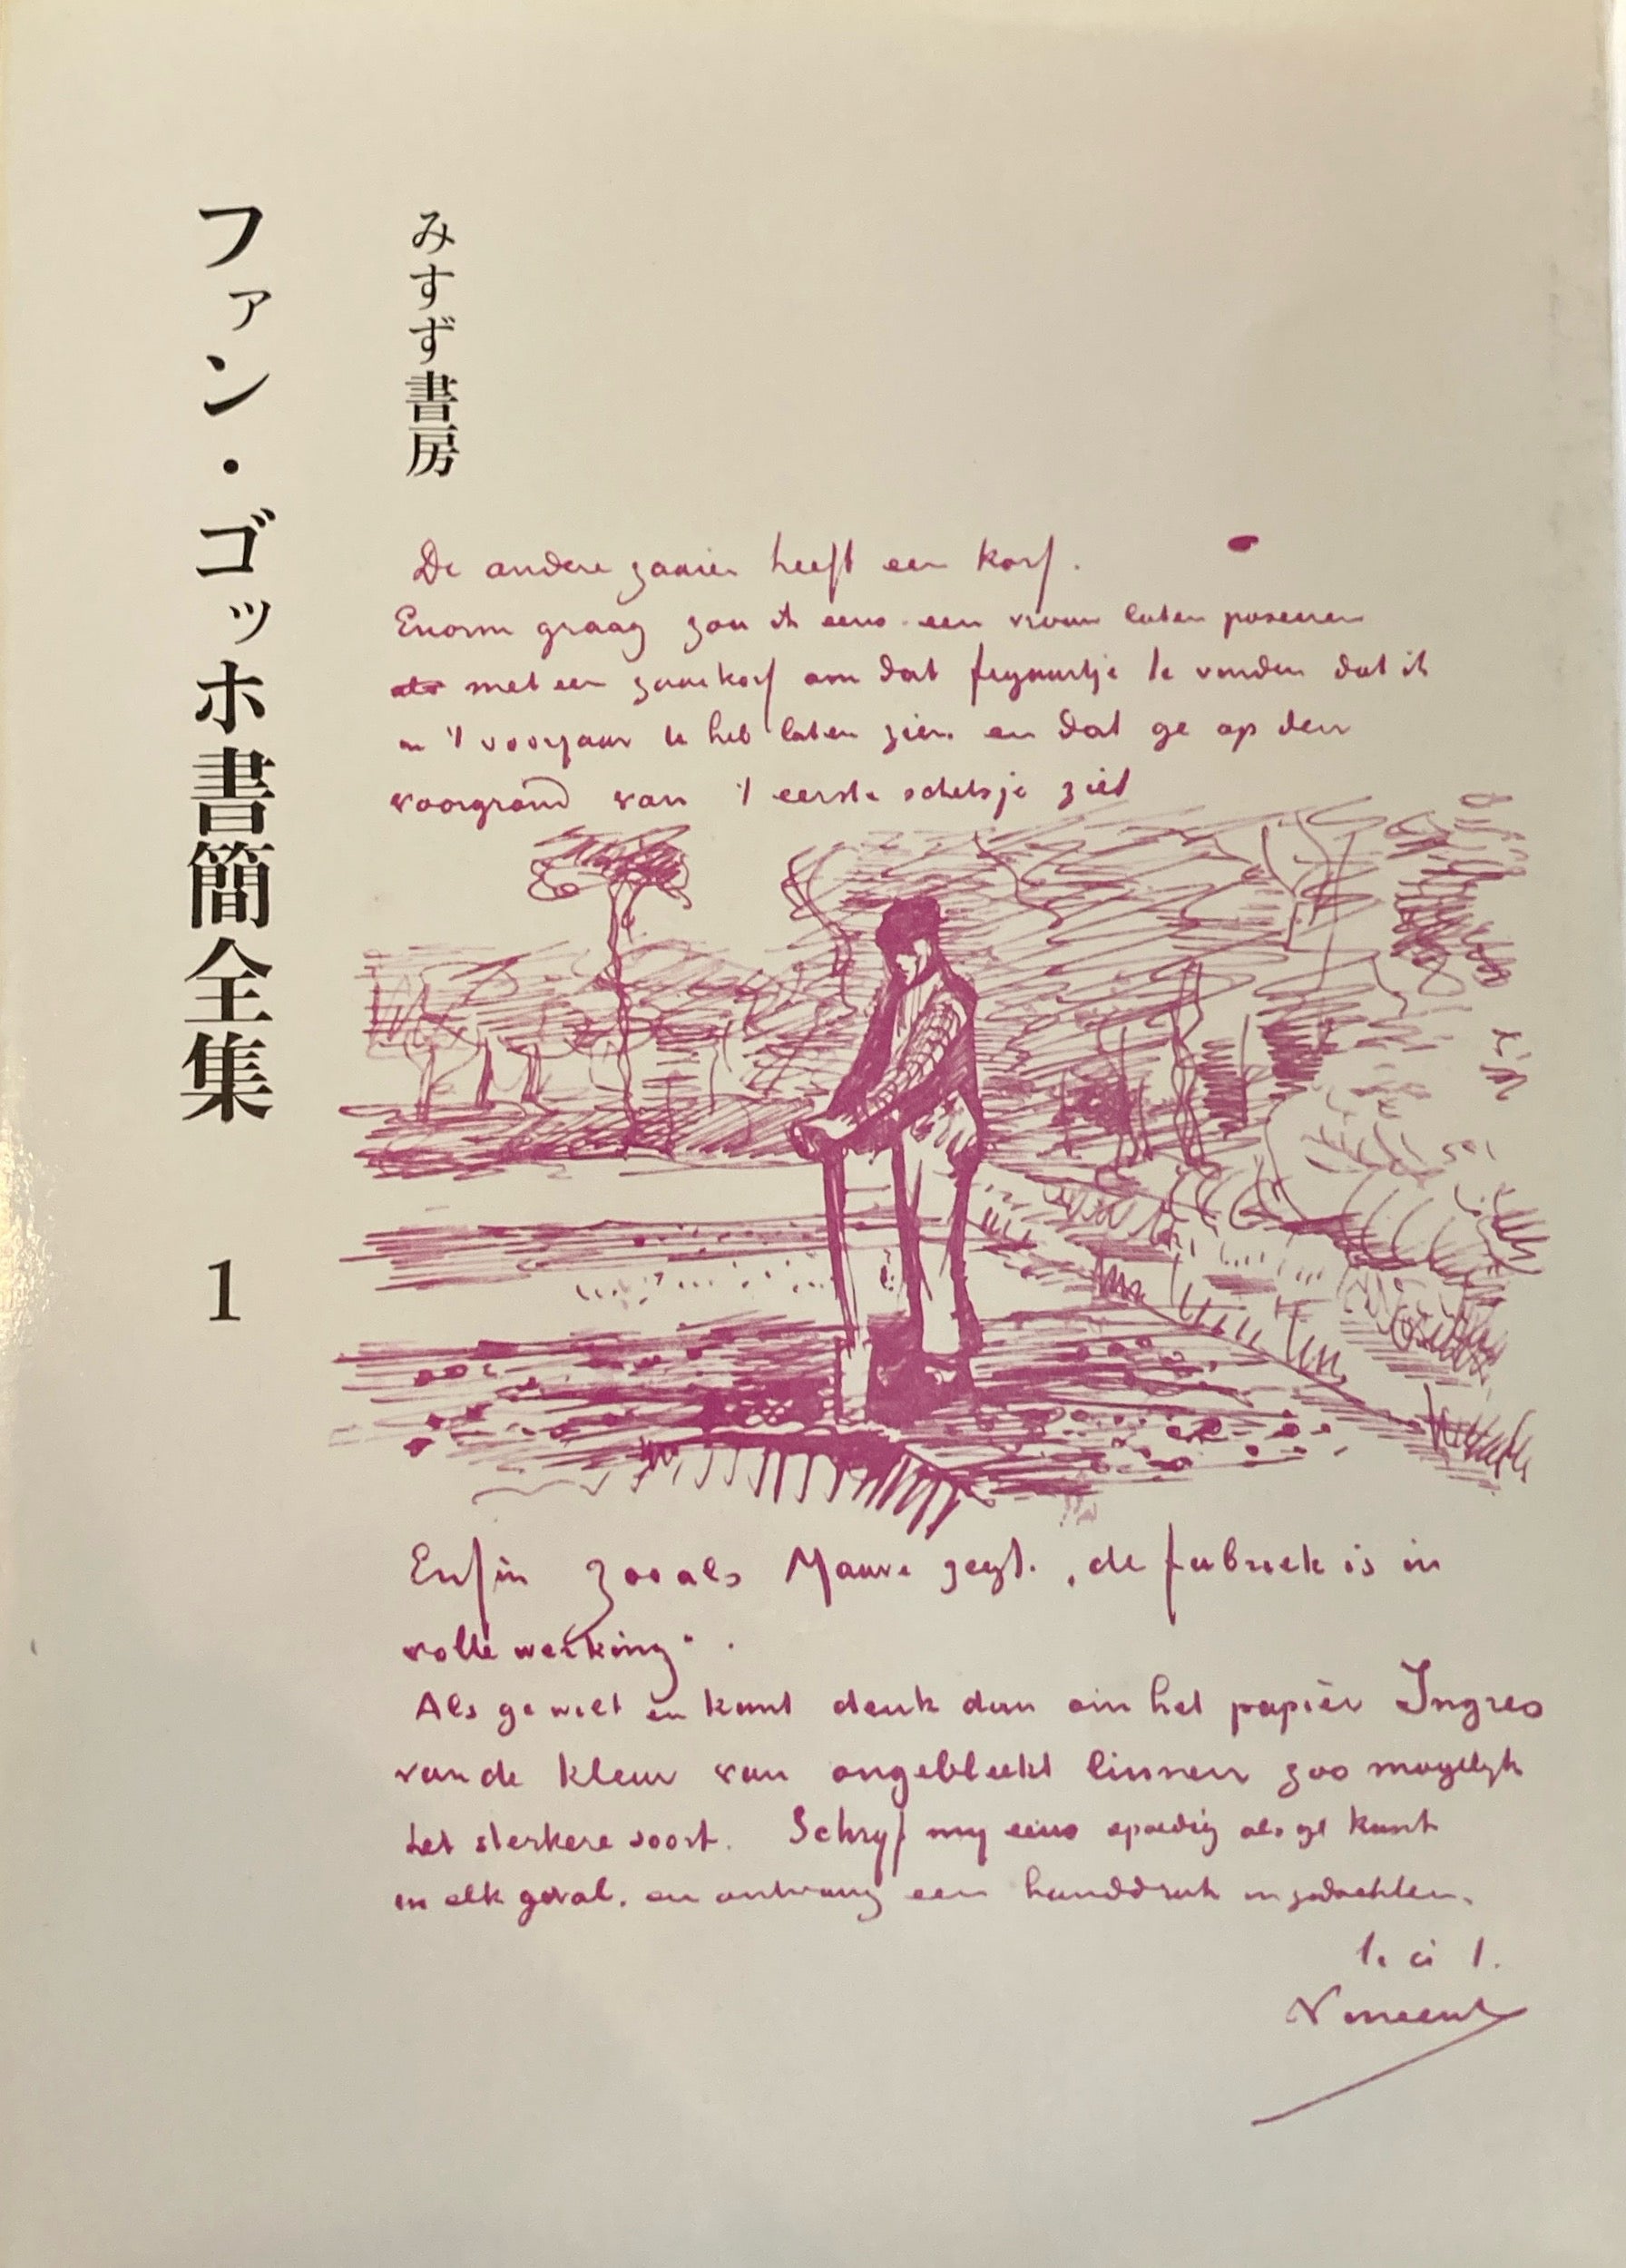 ファン・ゴッホ書簡全集 1
みすず書房
De andere zaaier heeft een korf.
Enorm graag zou ik eens een vrouw laten poseeren
met een zaaikorf om dat figuurtje te vinden dat ik
in 't voorjaar U heb laten zien en dat ge op den
voorgrond van 't eerste schetsje ziet
Enfin zooals Mauve zegt. „de fabriek is in
volle werking".
Als ge wilt en kunt denk dan om het papier Ingres
van de kleur van ongebleekt linnen zoo mogelijk
het sterkere soort. Schryf my eens spoedig als ge kunt
in elk geval, en ontvang een handdruk in gedachten.
t. à t.
Vincent